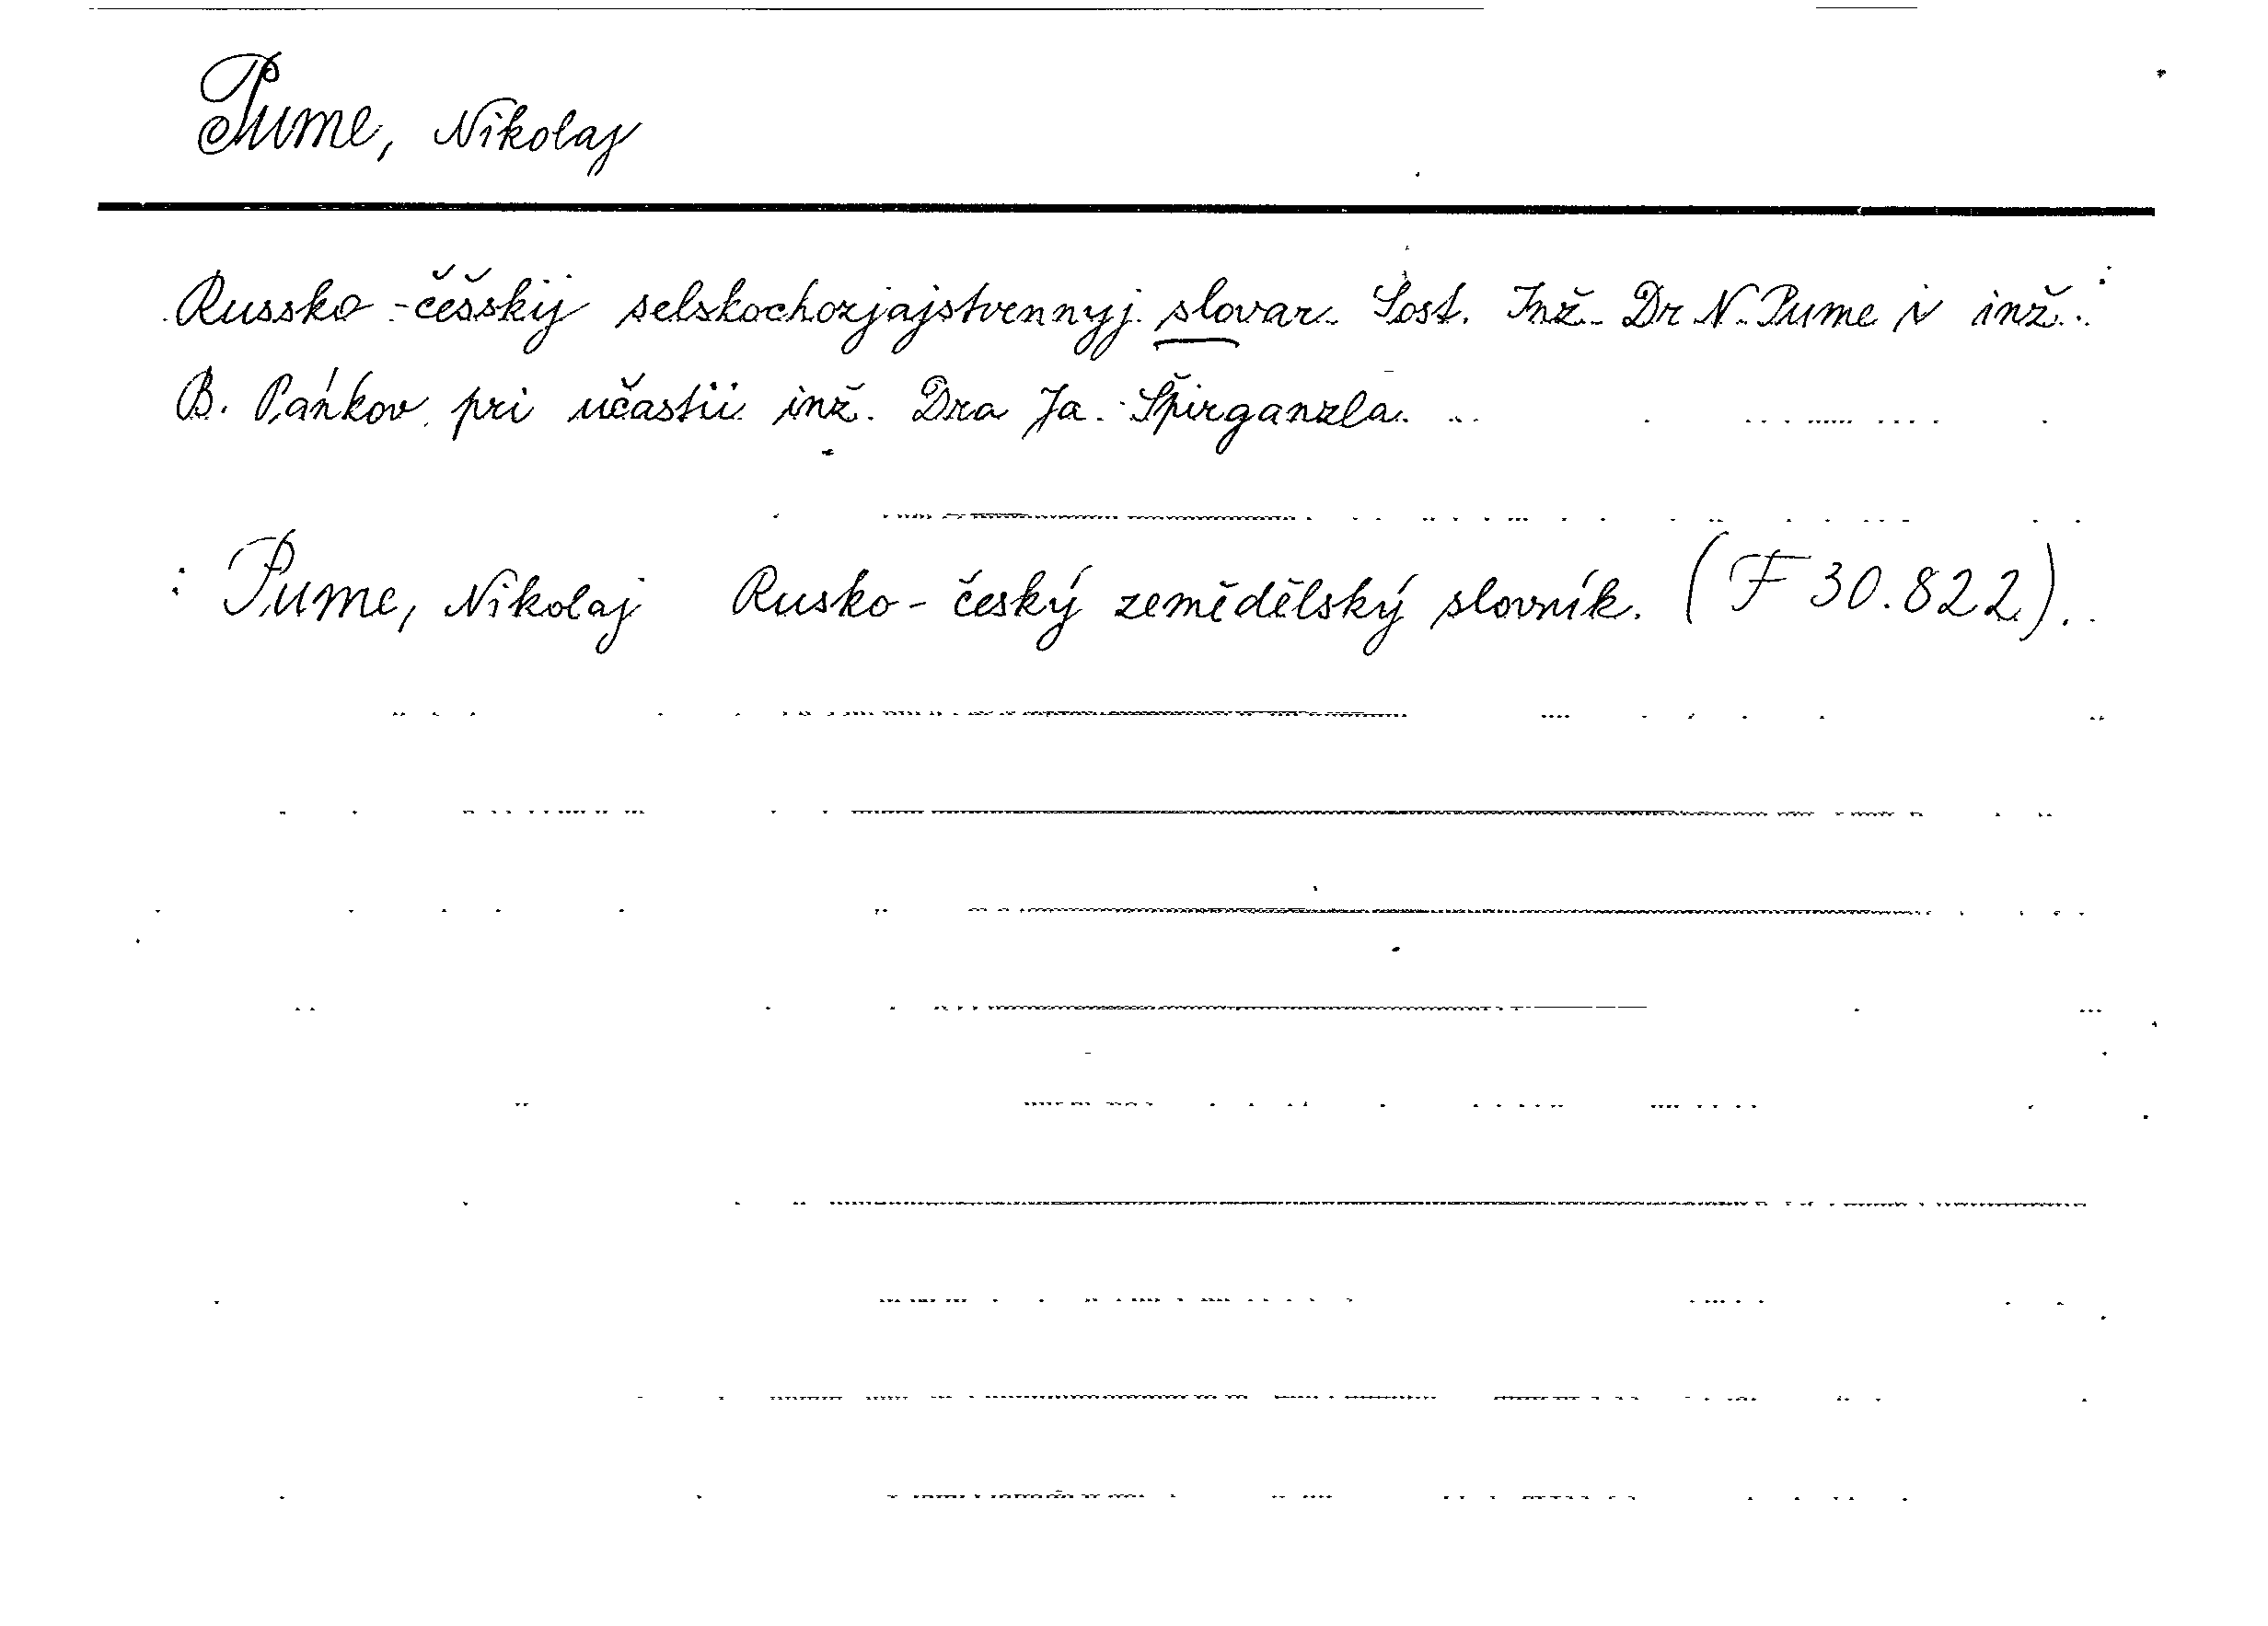 Pume, Nikolaj
Russko-češskij selskochozjajstvennyj slovar. Sost. Inž. Dr N. Pume i inž.
B. Páńkov pri učastii inž. Dra Ja. Špirganzla.
: Pume, Nikolaj Rusko-český zemědělský slovník. (F 30.822).